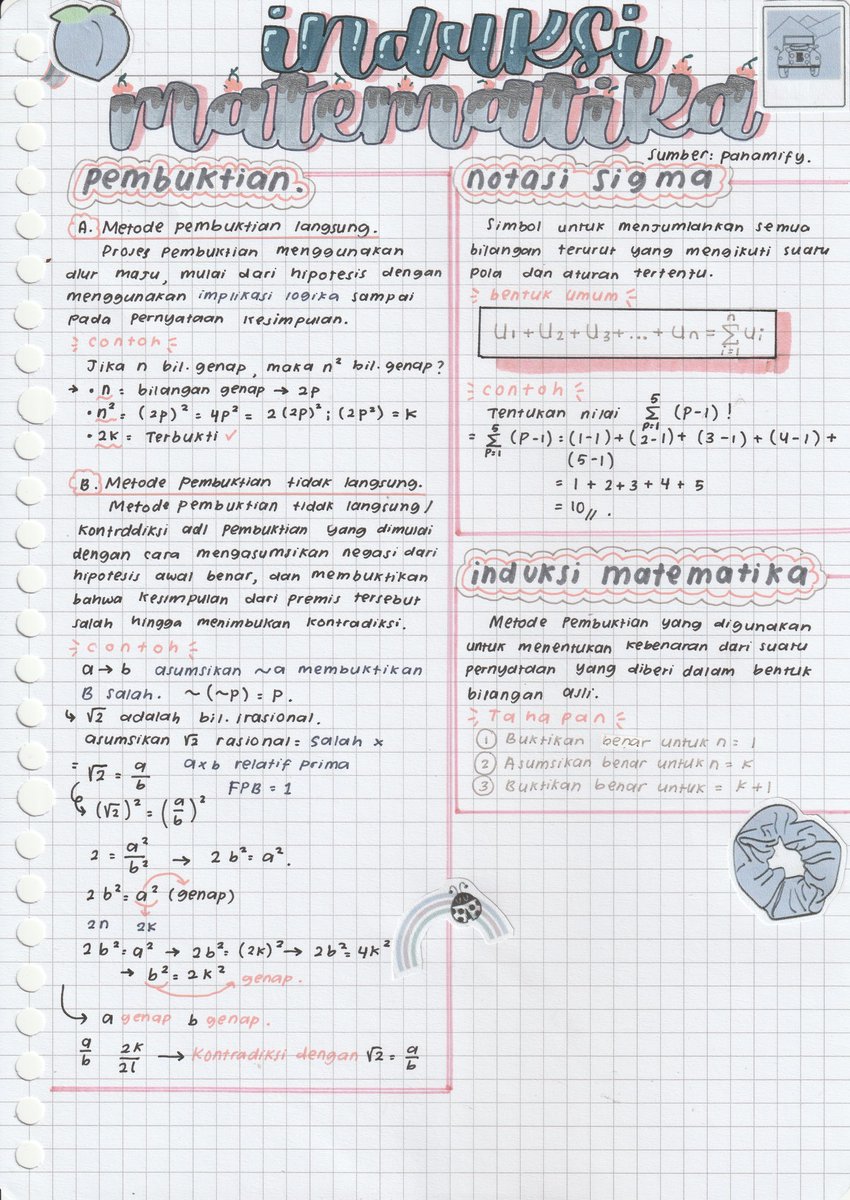 induksi
matematika
Sumber: Panamify.
pembuktian.
A. Metode pembuktian langsung.
Proses pembuktian menggunakan
alur maju, mulai dari hipotesis dengan
menggunakan implikasi logika sampai
pada pernyataan kesimpulan.
contoh
Jika n bil. genap, maka n² bil. genap?
→ • n = bilangan genap → 2p
• n² = (2p)² = 4p² = 2(2p)² ; (2p²) = k
• 2k = Terbukti ✓
B. Metode pembuktian tidak langsung.
Metode pembuktian tidak langsung/
kontrddiksi adl pembuktian yang dimulai
dengan cara mengasumsikan negasi dari
hipotesis awal benar, dan membuktikan
bahwa kesimpulan dari premis tersebut
salah hingga menimbulkan kontradiksi.
contoh
a → b asumsikan ~a membuktikan
B salah. ~(~p) = p.
↳ √2 adalah bil. irasional.
asumsikan √2 rasional = salah x
= √2 = a/b a x b relatif prima
FPB = 1
(√2)² = (a/b)²
2 = a²/b² → 2b² = a².
2b² = a² (genap)
2n 2k
2b² = a² → 2b² = (2k)² → 2b² = 4k²
→ b² = 2k² genap.
a genap b genap.
a/b 2k/2l → kontradiksi dengan √2 = a/b
notasi sigma
Simbol untuk menjumlahkan semua
bilangan terurut yang mengikuti suatu
pola dan aturan tertentu.
bentuk umum
U₁ + U₂ + U₃ + ... + Un = Σ(i=1, n) Ui
contoh
Tentukan nilai Σ(p=1, 5) (p-1) !
= Σ(p=1, 5) (p-1) = (1-1) + (2-1) + (3-1) + (4-1) +
(5-1)
= 1 + 2 + 3 + 4 + 5
= 10 // .
induksi matematika
Metode pembuktian yang digunakan
untuk menentukan kebenaran dari suatu
pernyataan yang diberi dalam bentuk
bilangan asli.
Tahapan
① Buktikan benar untuk n = 1
② Asumsikan benar untuk n = k
③ Buktikan benar untuk = k+1